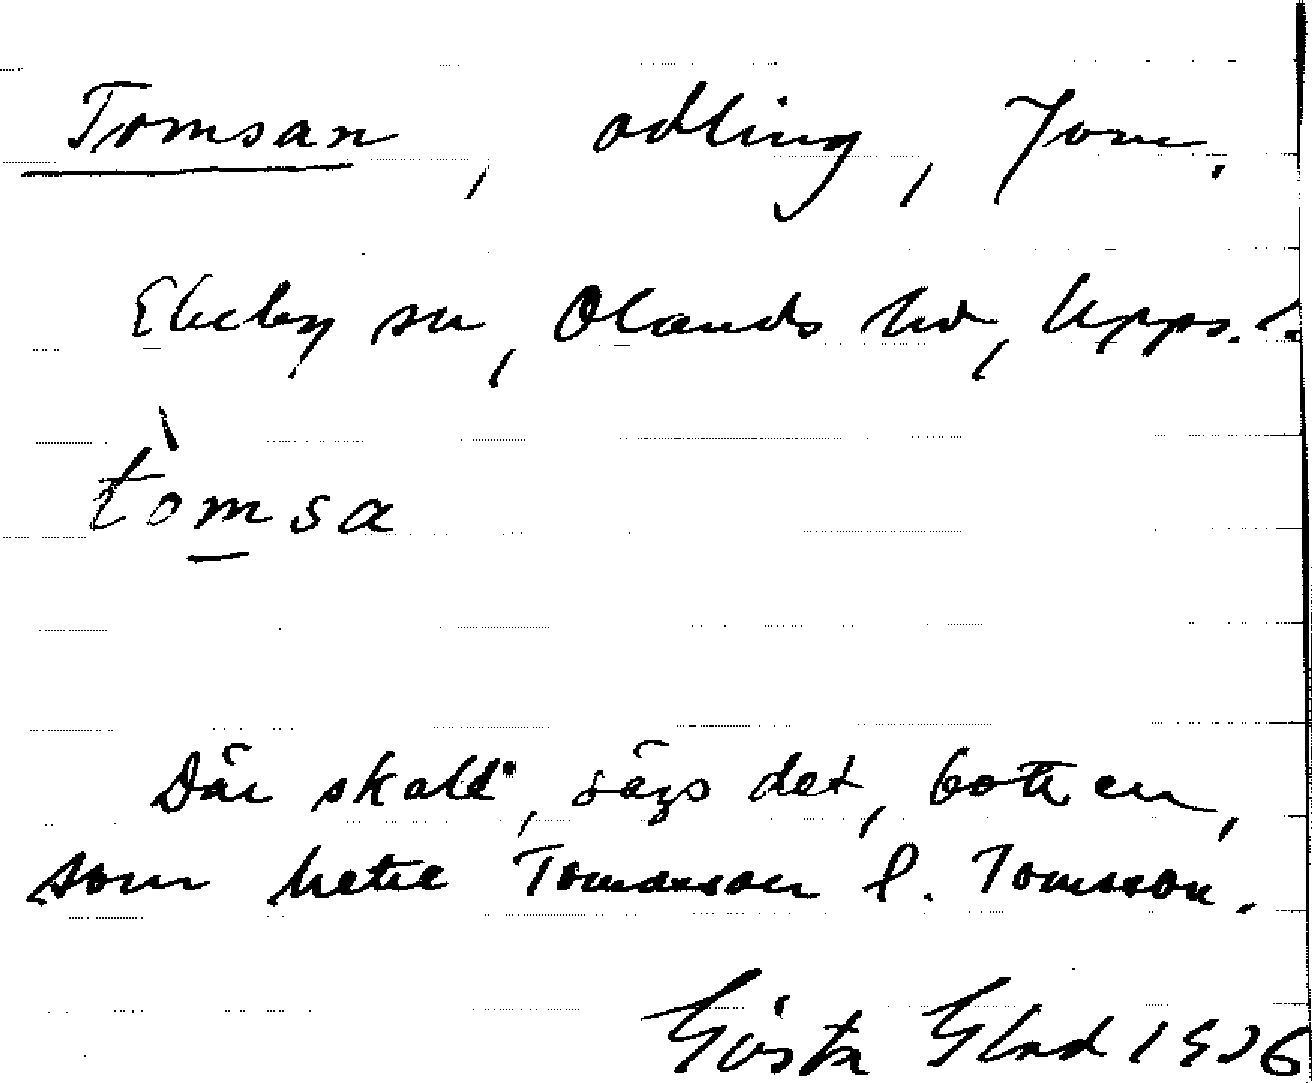 Tomsan, odling,
Ekeby sn, Olands hd, Upps. l.
tòmsa
Där skall, sägs det, bott en,
som hette Tomasson l. Tomsson.
Gösta 1926